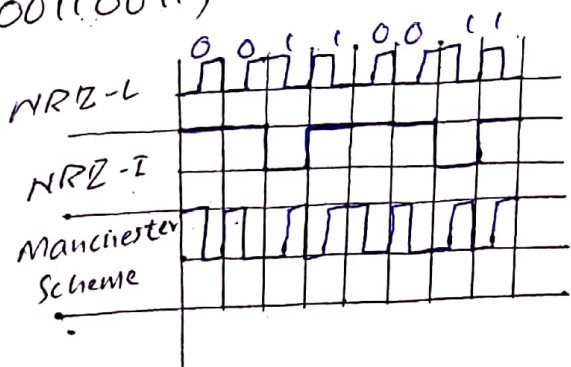 00110011)
0 0 1 1 0 0 1 1
NRZ-L
NRZ-I
Manchester
Scheme